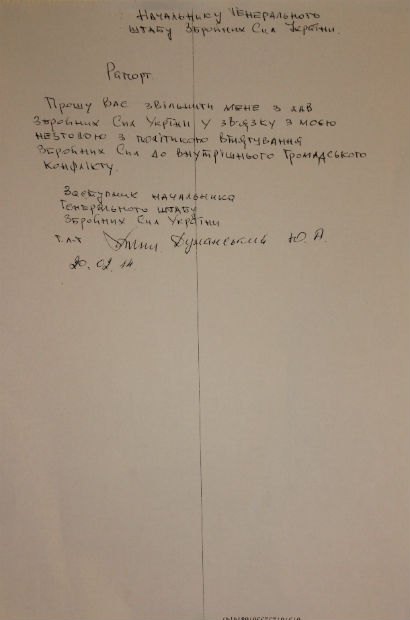 Начальнику Генерального
штабу Збройних Сил України.
Рапорт
Прошу Вас звільнити мене з лав
Збройних Сил Укрїни у зв'язку з моєю
незгодою з політикою втягування
Збройних Сил до внутрішнього громадського
конфлікту.
Заступник начальника
Генерального штабу
Збройних Сил України
г.л-т Думанський Ю. А.
20.02.14